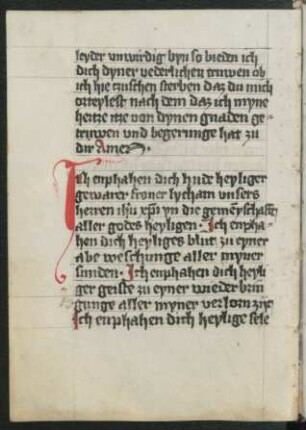 leyder unwirdig byn so bieden ich
dich dyner vederlichen truwen ob
ich hie zuschen sterben daz du mich
nach dem daz ich myne
hertze von dynen gnaden ge-
truwen und begeringe hat zu
dir Amen.
Ich enphahen dich hude heyliger
gewarer froner lycham unsers
herren ihu xpi yn die gemeynschafft
aller godes heyligen. Ich enpha-
hen dich heyliges blut zu eyner
abe weschunge aller myner
sunden. Ich enphahen dich heyli
ger geiste zu eyner wieder brin
gunge aller myner verlorn zijt
Ich enphahen dich heylige sele